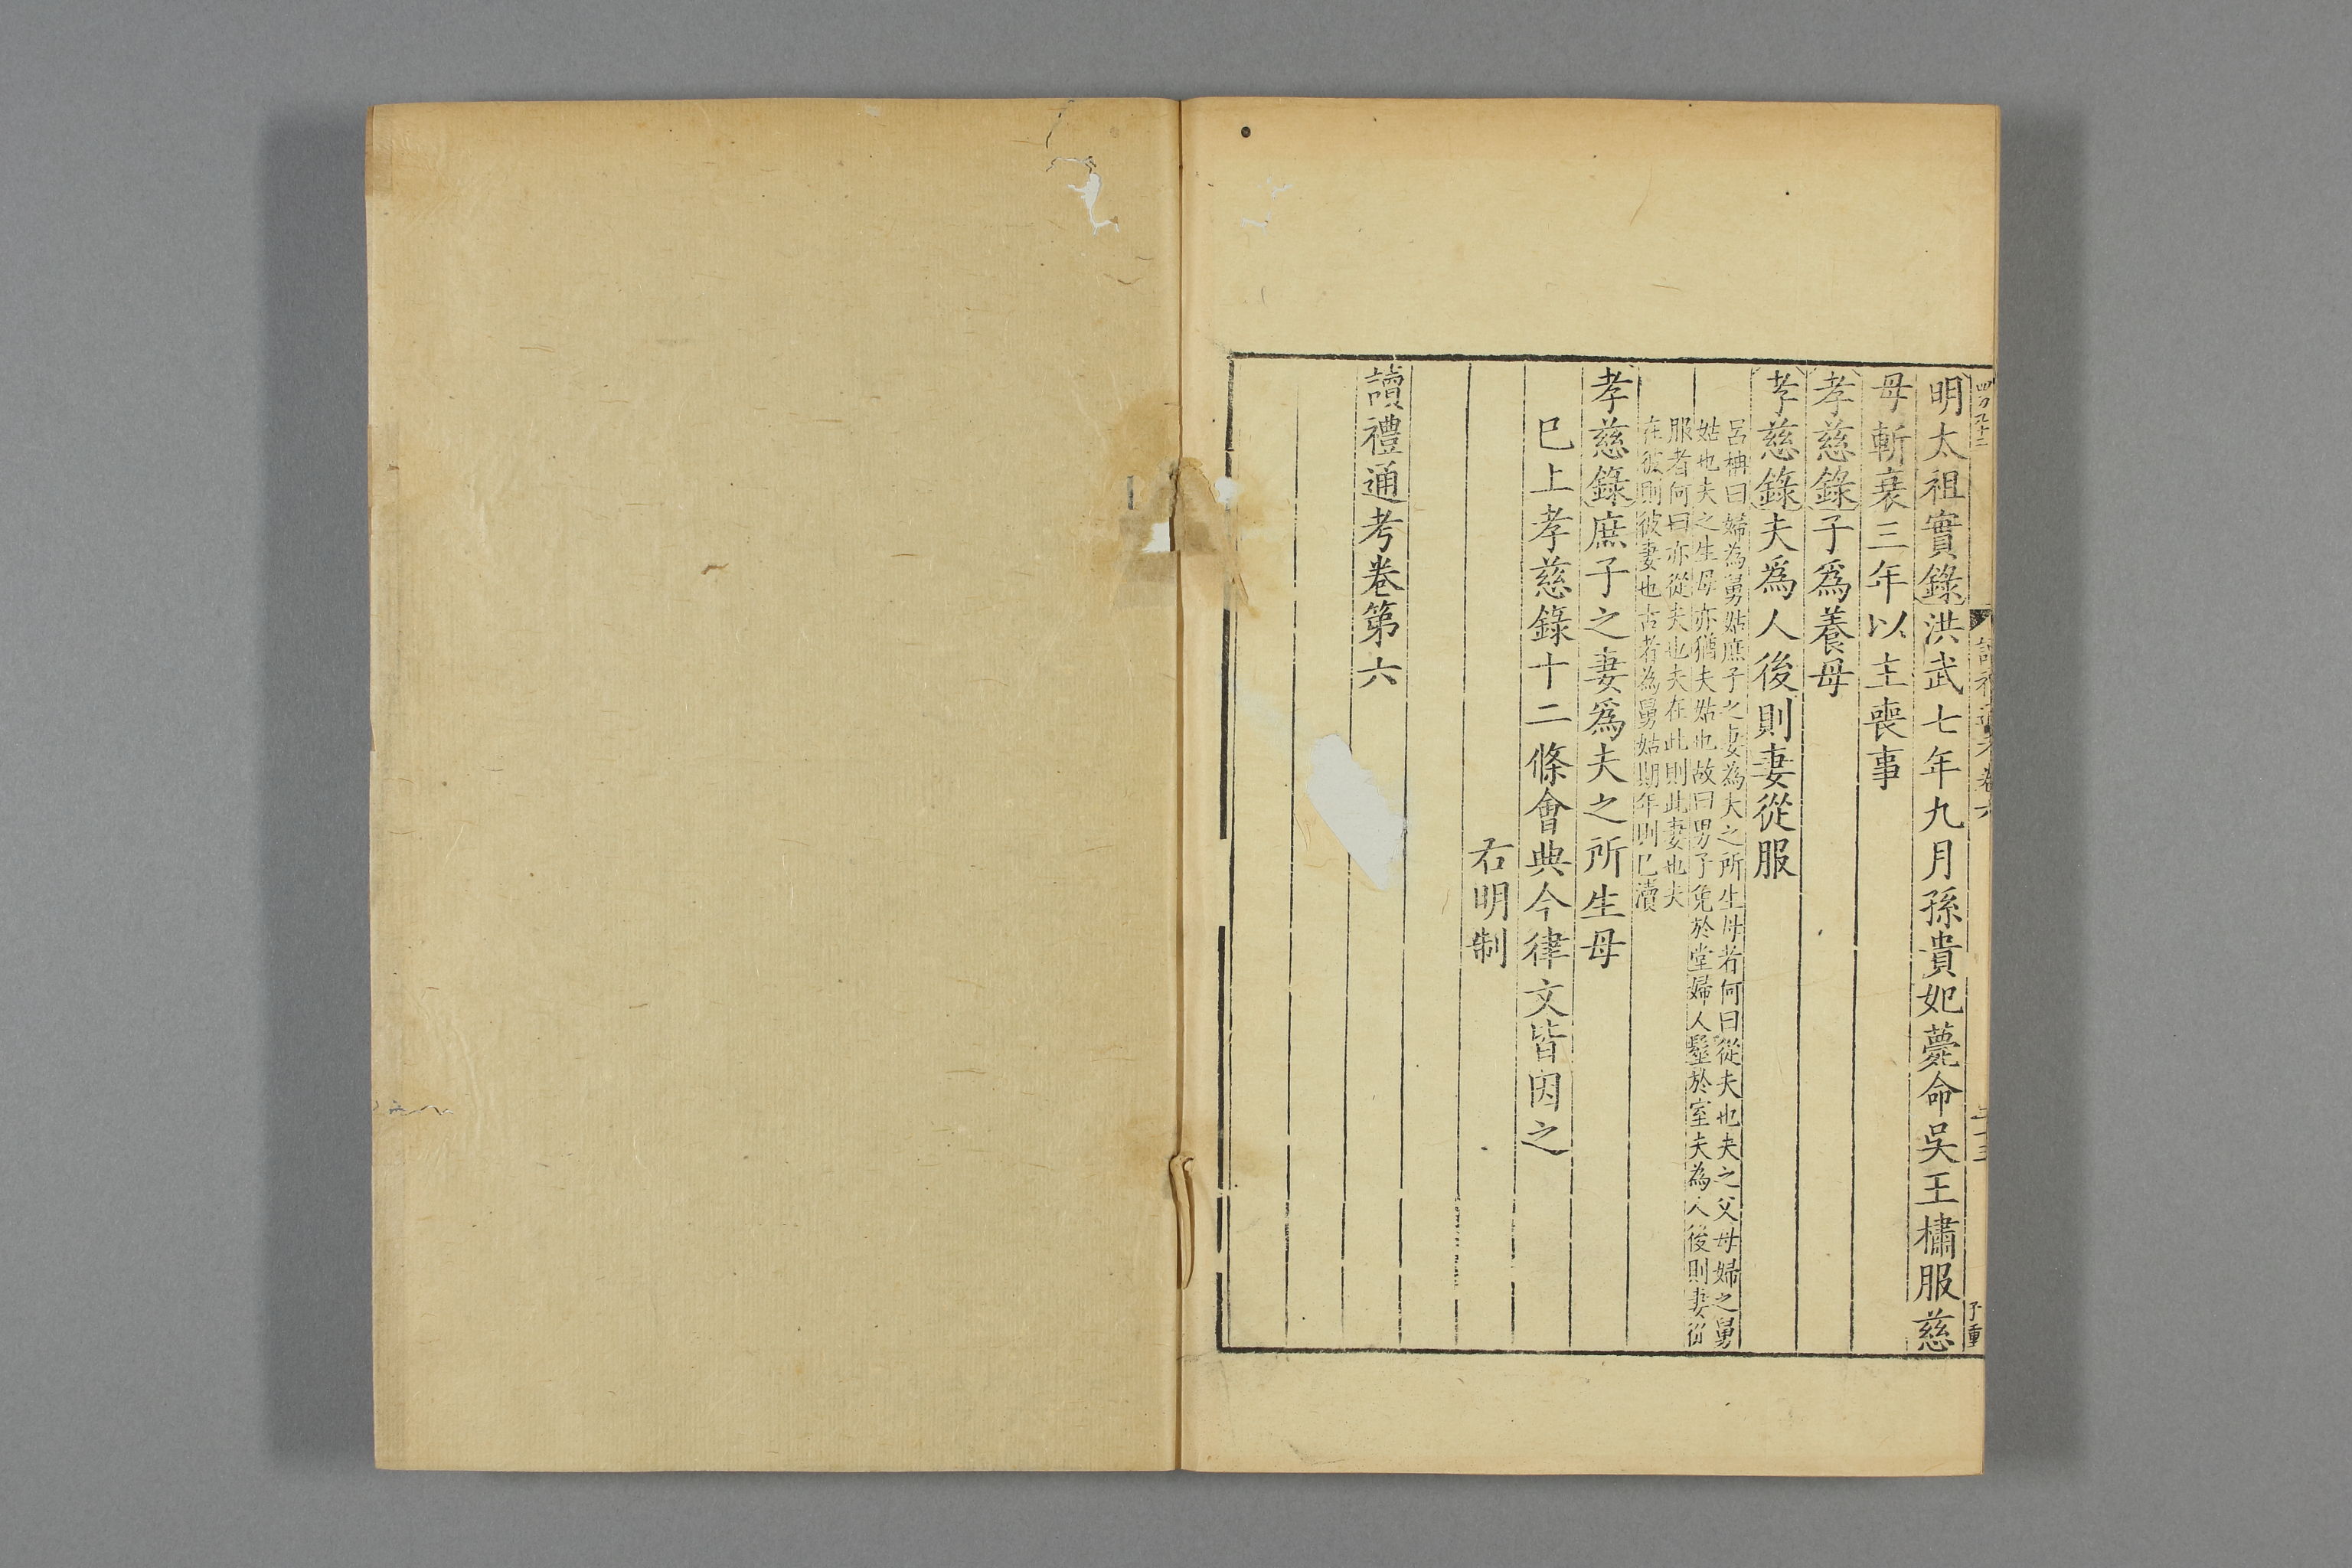 明太祖實錄洪武七年九月孫貴妃薨命吳王橚服慈
母斬衰三年以主喪事
孝慈錄子爲養母
孝慈錄夫爲人後則妻從服
呂柟曰婦為舅姑庶子之妻為夫之所生母者何曰從夫也夫之父母婦之舅
姑也夫之生母亦猶夫姑也故曰男子免於堂婦人髽於室夫為人後則妻從
服者何曰亦從夫也夫在此則此妻也夫
在彼則彼妻也古者為舅姑期年則已瀆
孝慈錄庶子之妻爲夫之所生母
巳上孝慈錄十二條會典今律文皆因之
右明制
讀禮通考卷第六